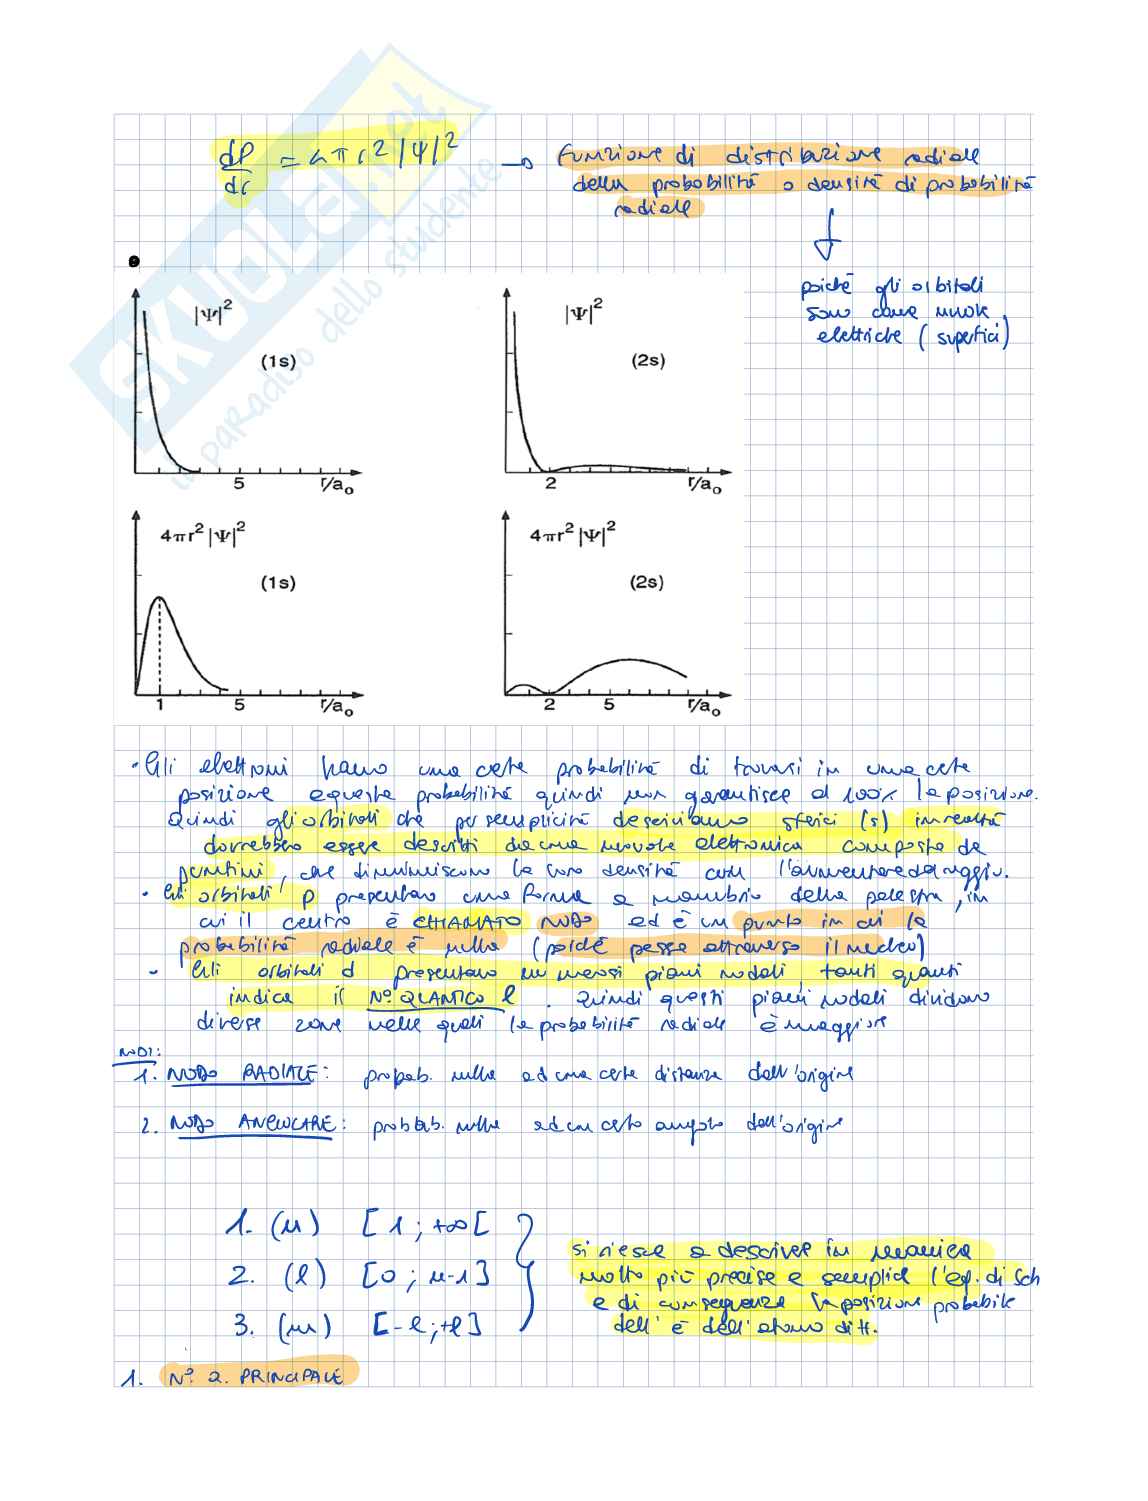 SKUOLA.net
il paradiso dello studente
dP/dr = 4πr²|Ψ|² → funzione di distribuzione radiale
della probabilità o densità di probabilità
radiale
poiché gli orbitali
sono come nuvole
elettriche (superfici)
|Ψ|²
(1s)
5 r/a₀
|Ψ|²
(2s)
2 r/a₀
4πr²|Ψ|²
(1s)
1 5 r/a₀
4πr²|Ψ|²
(2s)
2 5 r/a₀
• Gli elettroni hanno una certa probabilità di trovarsi in una certa
posizione e questa probabilità quindi non garantisce al 100% la posizione.
Quindi gli orbitali che per semplicità descriviamo sferici (s) in realtà
dovrebbero essere descritti da una nuvola elettronica composta da
puntini, che diminuiscono la loro densità con l'aumentare del raggio.
• Gli orbitali p presentano una forma a manubrio della palestra, in
cui il centro è CHIAMATO NODO ed è un punto in cui la
probabilità radiale è nulla (poiché passa attraverso il nucleo)
• Gli orbitali d presentano numerosi piani nodali, tanti quanti
indica il N° QUANTICO l. Quindi questi piani nodali dividono
diverse zone nelle quali la probabilità radiale è maggiore
NODI:
1. NODO RADIALE: probab. nulla ad una certa distanza dall'origine
2. NODO ANGOLARE: probab. nulla ad un certo angolo dall'origine
1. (n) [1; +∞[
2. (l) [0; n-1]
3. (m) [-l; +l]
si riesce a descrivere in maniera
molto più precisa e semplice l'eq. di Sch
e di conseguenza la posizione probabile
dell' e⁻ dell'atomo di H.
1. N° Q. PRINCIPALE